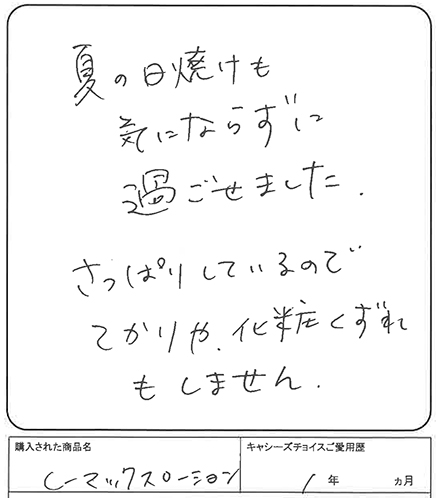 夏の日焼けも
気にならずに
過ごせました.
さっぱりしているので
てかりや、化粧くずれ
もしません.
購入された商品名
キャシーズチョイスご愛用歴
シーマックスローション
1 年 ヵ月